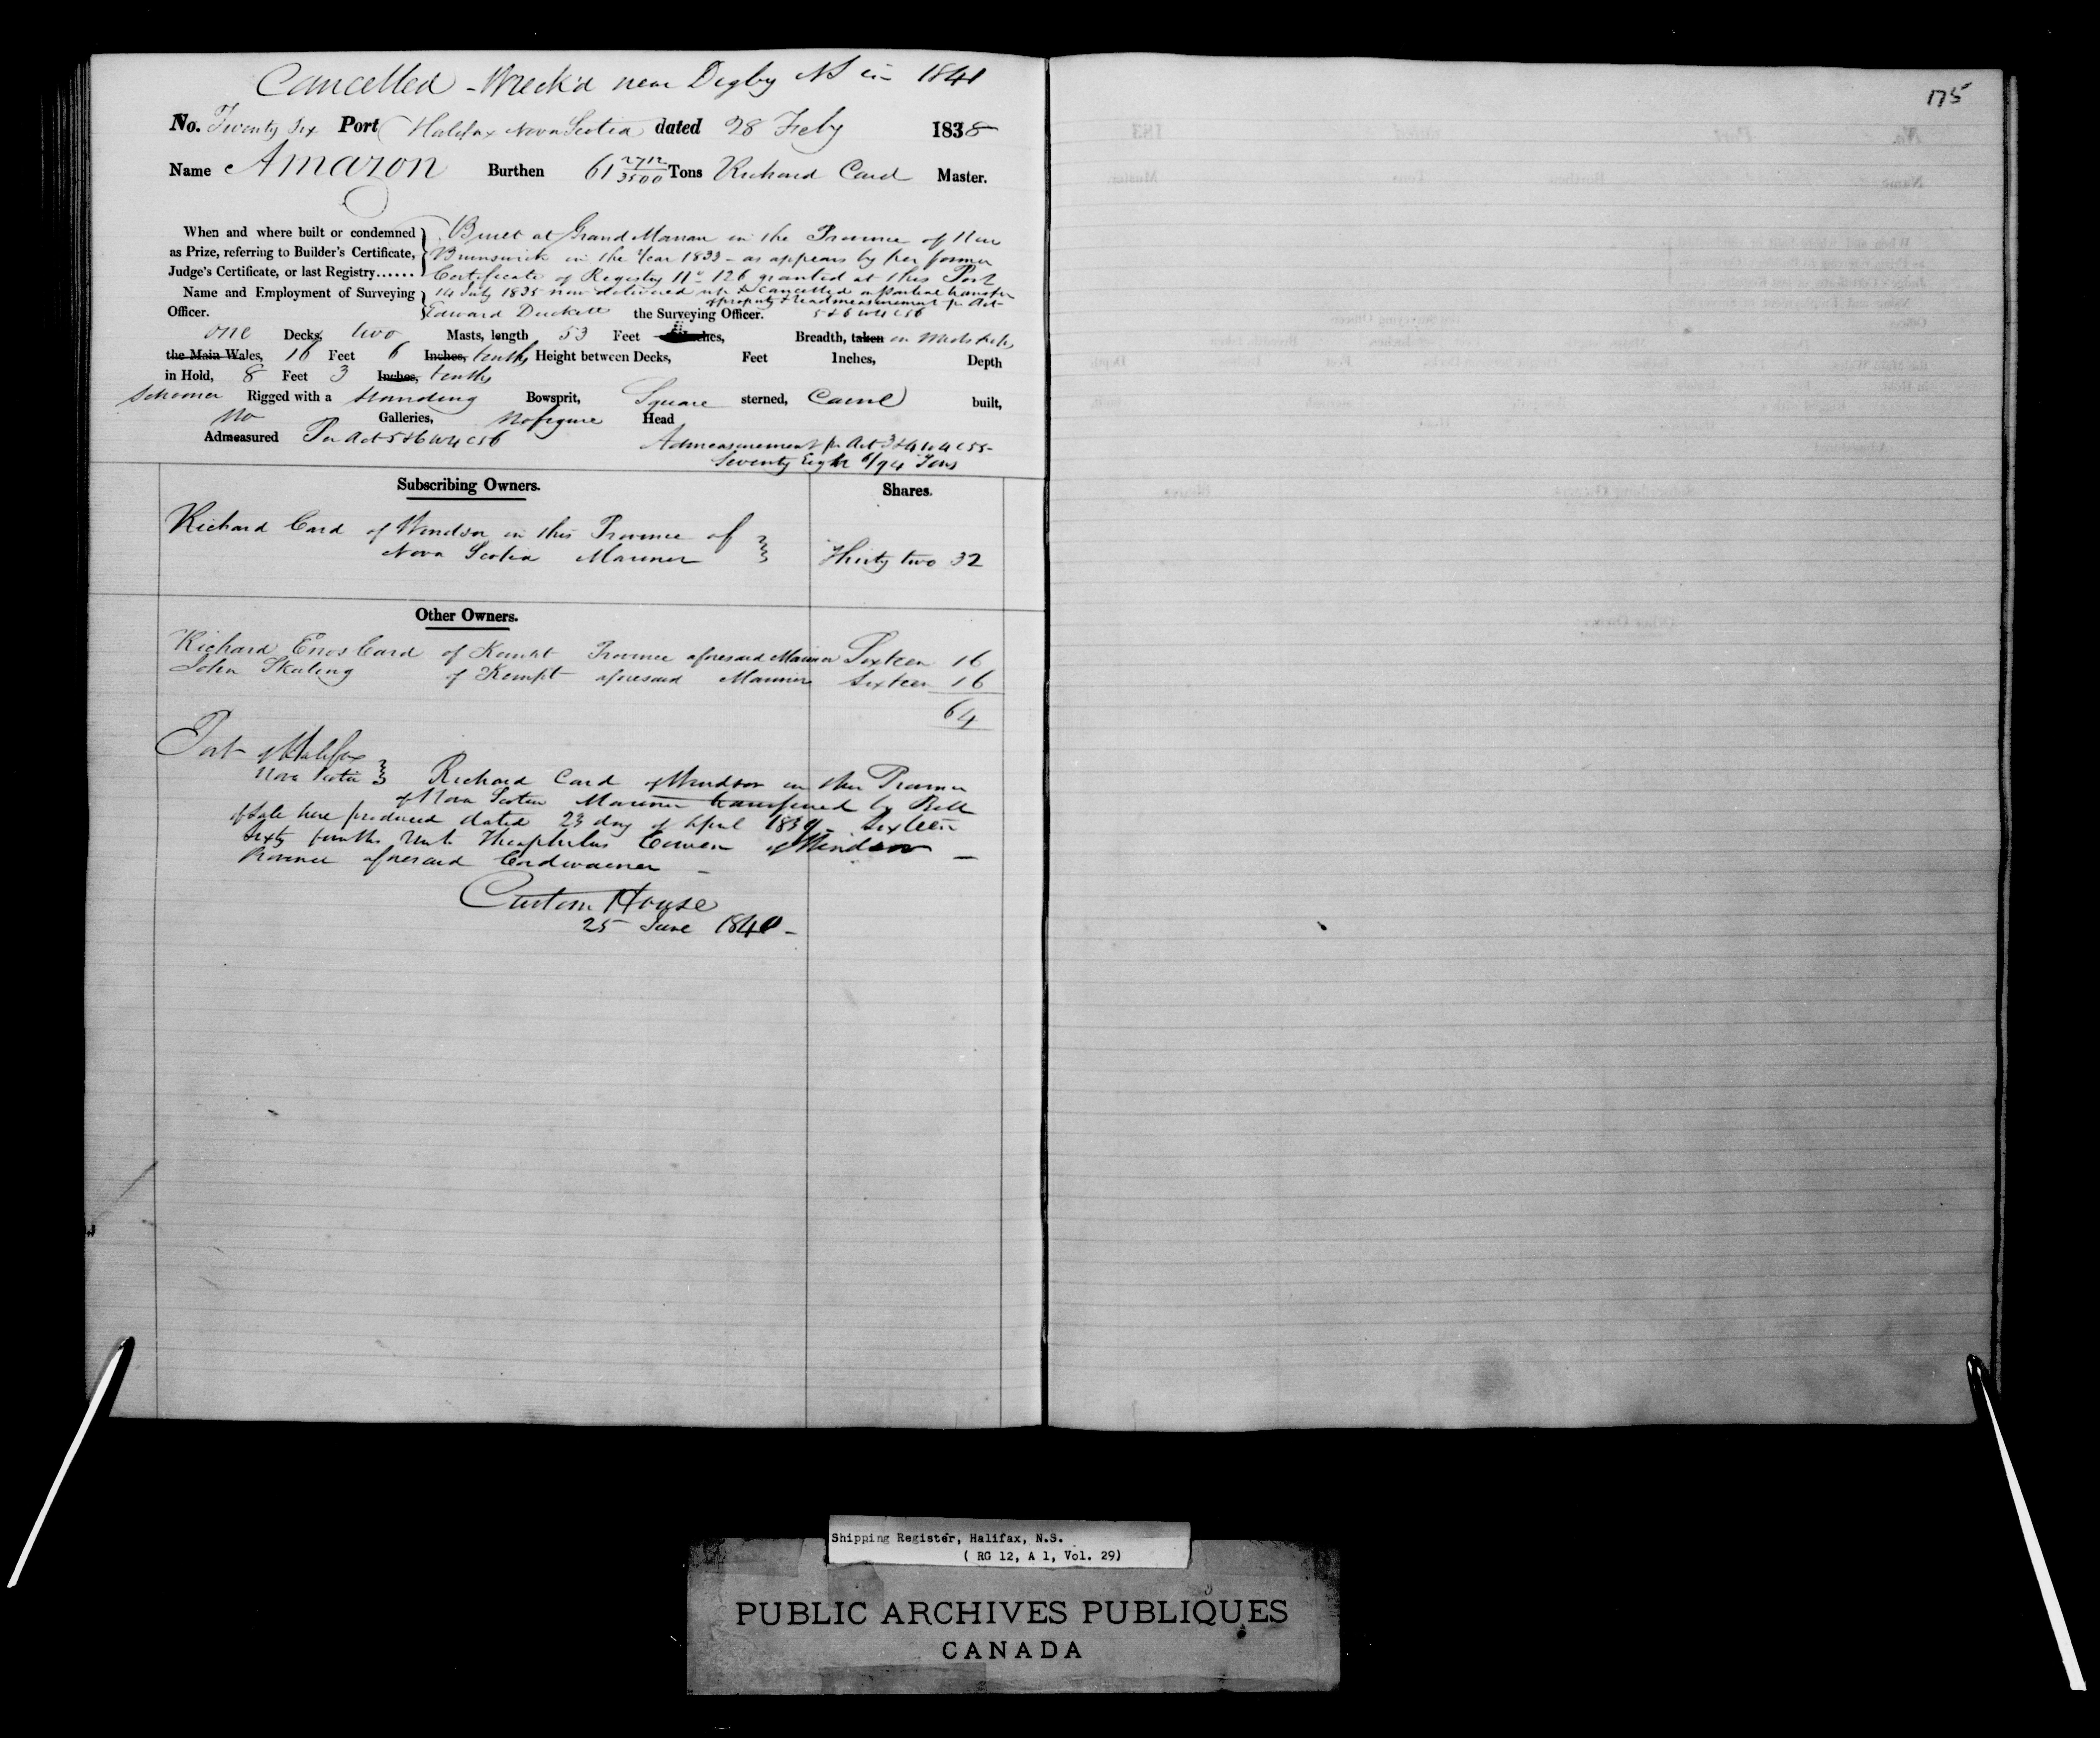 Cancelled - Wreck'd near Digby NS in 1841
No. Twenty Six Port Halifax Nova Scotia dated 28 Feby 1838
Name Amazon Burthen 61 2712/3500 Tons Richard Card Master.
When and where built or condemned } Built at Grand Manan in the Province of New
as Prize, referring to Builder's Certificate, Brunswick in the Year 1833 - as appears by her former
Judge's Certificate, or last Registry...... Certificate of Registry No 126 granted at this Port
Name and Employment of Surveying } 14 July 1835 now delivered up & Cancelled on partial transfer
of property & readmeasurement pr Act
Officer. Edward Duckett the Surveying Officer. 5&6 W4 c56
one Decks, two Masts, length 53 Feet Inches, Breadth, taken in Midships
the Main Wales, 16 Feet 6 Inches, tenths Height between Decks, Feet Inches, Depth
in Hold, 8 Feet 3 Inches, tenths
Schooner Rigged with a Standing Bowsprit, Square sterned, Carvel built,
No Galleries, No figure Head
Admeasured Per Act 5&6 W4 c56 Admeasurement pr Act 3&4 W4 c55-
Seventy Eight 6/94 Tons
Subscribing Owners. Shares.
Richard Card of Windsor in this Province of
Nova Scotia Mariner Thirty two 32
Other Owners.
Richard Enos Card of Kempt Province aforesaid Mariner Sixteen 16
John Skaling of Kempt aforesaid Mariner Sixteen 16
64
Port of Halifax
Nova Scotia } Richard Card of Windsor in the Province
of Nova Scotia Mariner transferred by Bill
of Sale here produced dated 23 day of April 1839 - Sixteen
Sixty fourths Unto Theophilus Cowen of Windsor -
Province aforesaid Cordwainer -
Custom House
25 June 1840 -
175
Shipping Register, Halifax, N.S.
( RG 12, A 1, Vol. 29)
PUBLIC ARCHIVES PUBLIQUES
CANADA